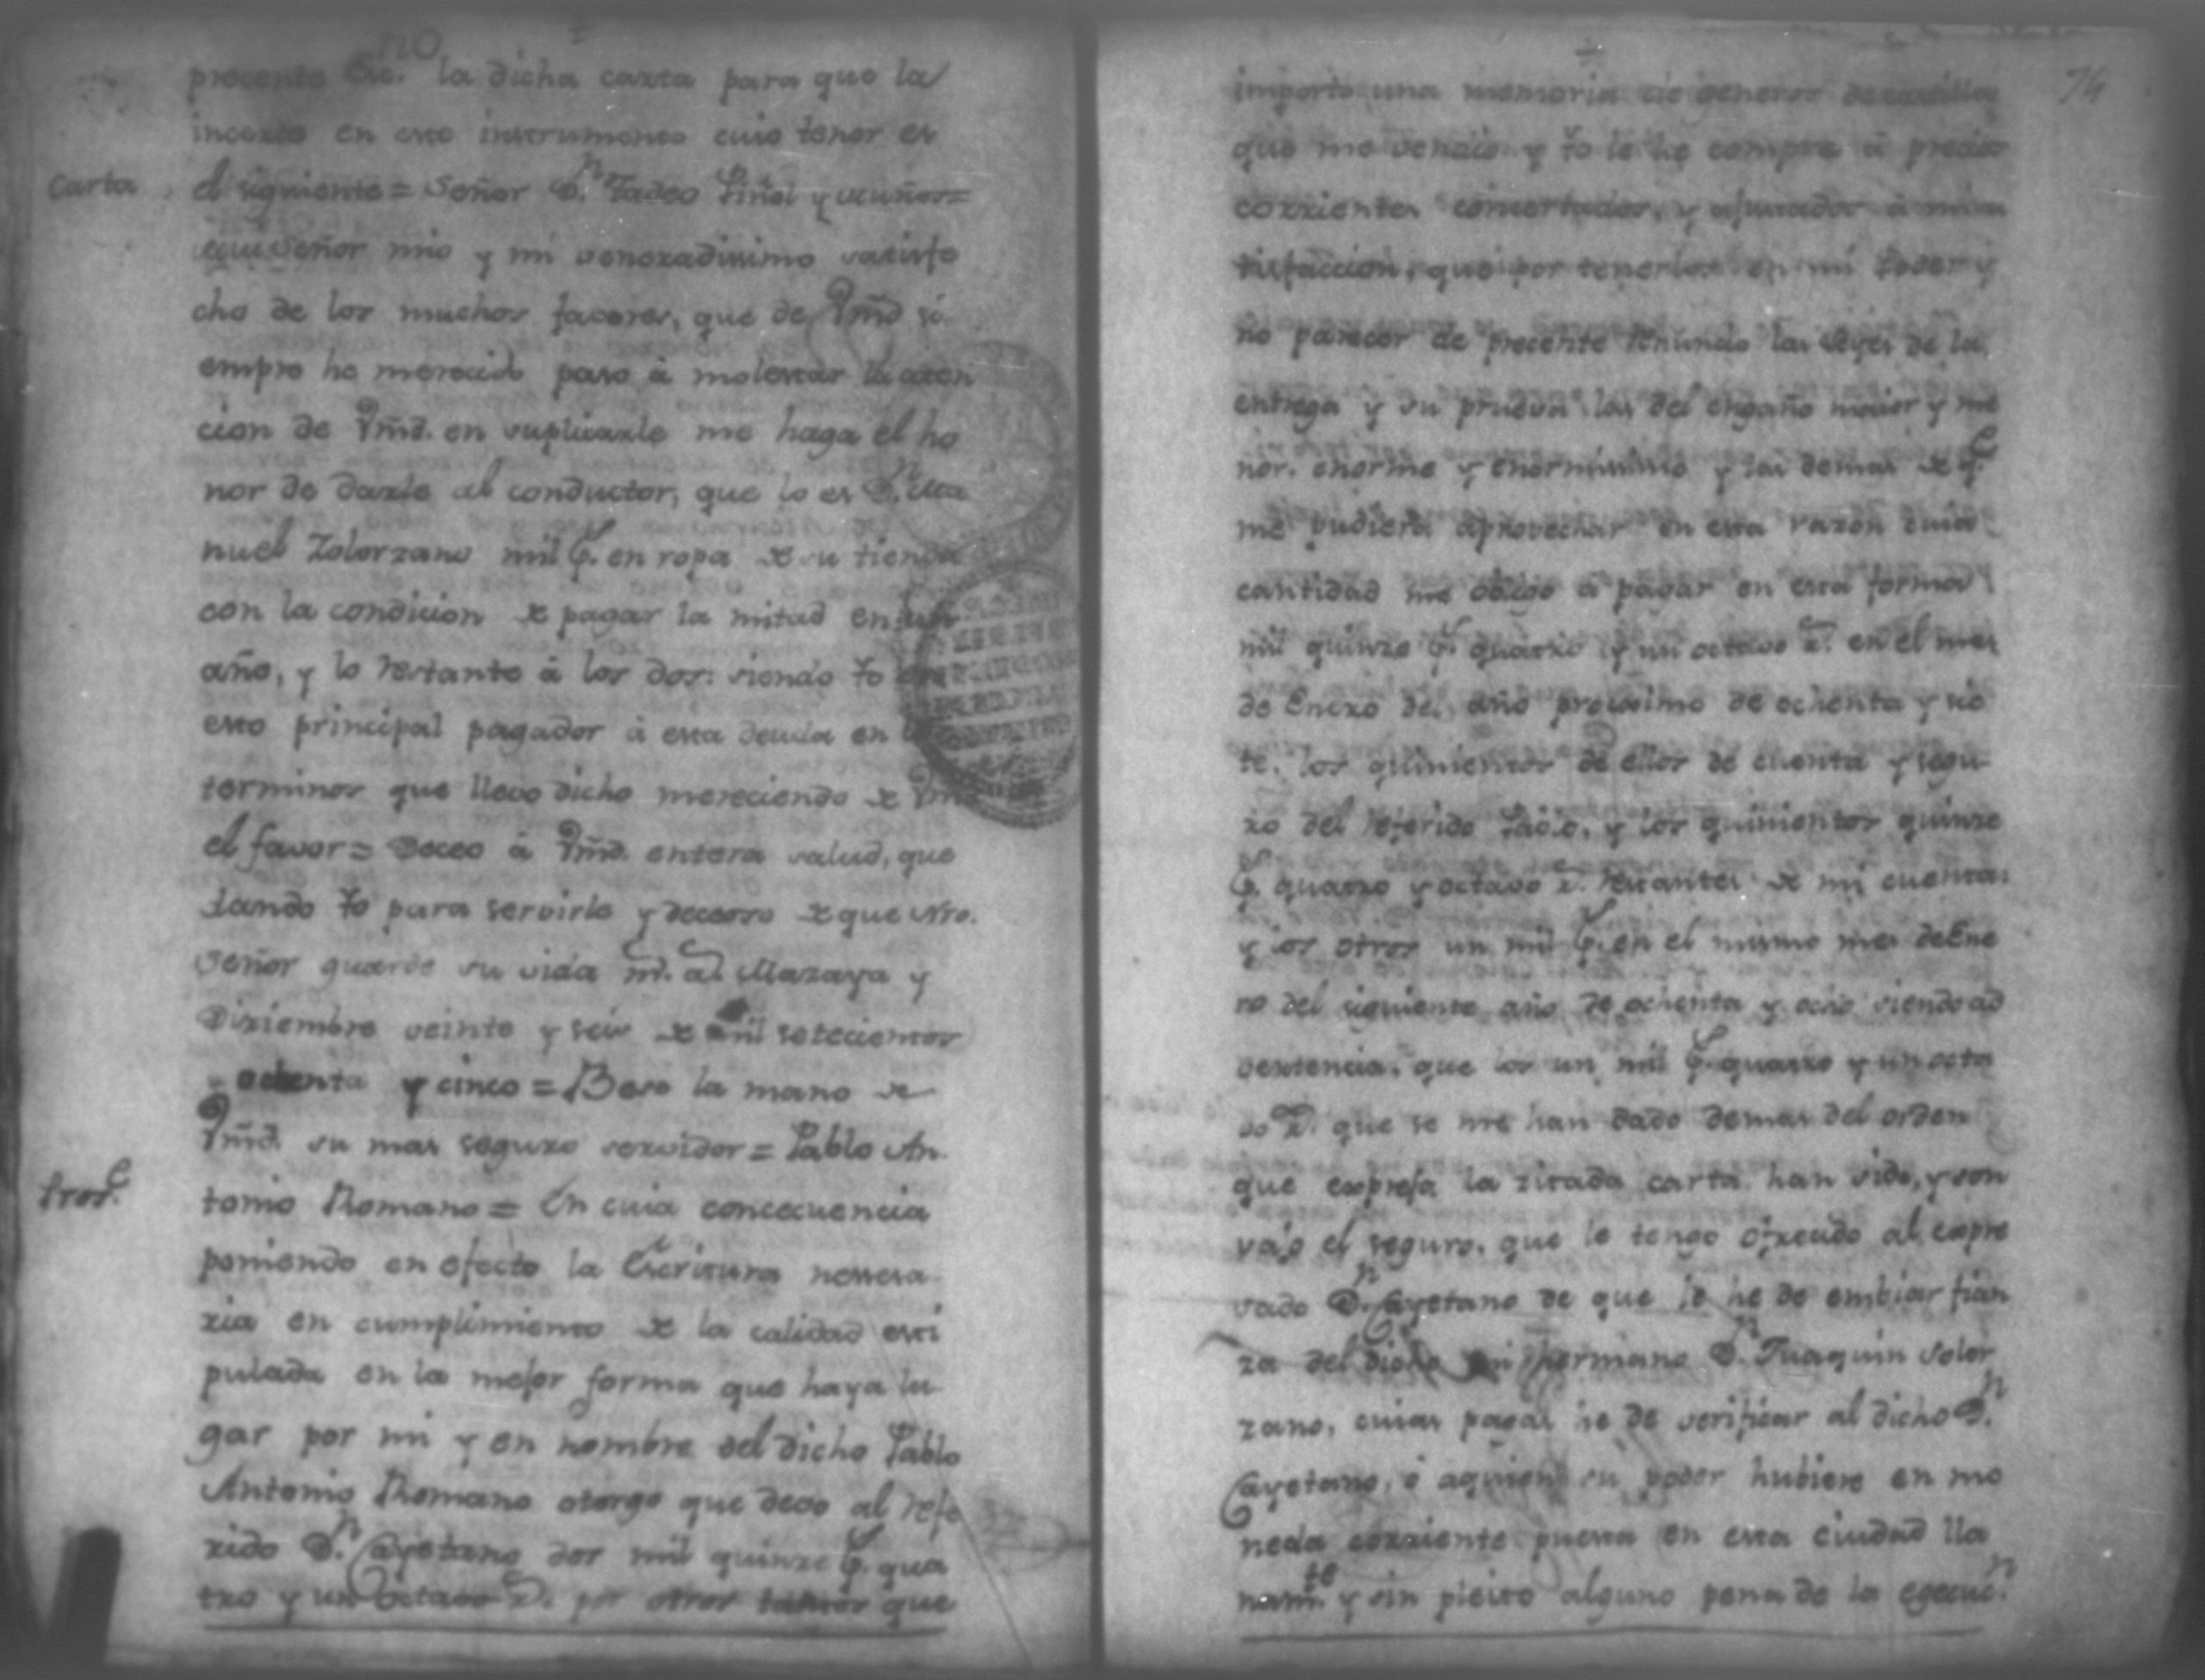 no
precente Esc.no la dicha carta para que la
incerte en este instrumento cuio tenor es
Carta el siguiente = Señor D.n Tadeo Piñol y
Señor mio y mi veneradissimo satisfe
cho de los muchos favores, que de Vmd si
empre he merecido paso à molestar la aten
cion de Vmd. en suplicarle me haga el ho
nor de darle al conductor, que lo es D.n Ma
nuel Zolorzano mil p.s en ropa de su tienda
con la condicion de pagar la mitad en un
año, y lo restante à los dos: siendo Yo
esto principal pagador à esta deuda en
terminos que llevo dicho mereciendo de Vmd
el favor = Deceo à Vmd. entera salud, que
dando Yo para servirle y deceoso de que Nro.
Señor guarde su vida m.s a.s Mazaya y
Diziembre veinte y seis de mil setecientos
ochenta y cinco = Beso la mano de
Vmd. su mas seguro servidor = Pablo An
Pros.e tonio Rhomano = En cuia concecuencia
poniendo en efecto la Escritura nessesa
ria en cumplimiento de la calidad esti
pulada en la mejor forma que haya lu
gar por mi y en nombre del dicho Pablo
Antonio Rhomano otorgo que devo al refe
rido D.n Cayetano dos mil quinze p.s qua
tro y un octavo r.s por otros tantos que
74
importo una memoria de generos de castilla
que me vendio y Yo le he compra à precios
corrientes concertados, y ajustados à mi sa
tisfaccion, que por tenerlos en mi poder y
no parecer de precente renuncio las leyes de la
entrega y su prueva las del engaño maior y me
nor, enorme y enormissimo y las demas de q.e
me pudiera aprovechar en esta razon cuia
cantidad me obligo à pagar en esta forma
mil quinze p.s quatro y un octavo r.s en el mes
de Enero del año procsimo de ochenta y sie
te, los quinientos de ellos de cuenta y segu
ro del referido Pablo, y los quinientos quinze
p.s quatro y octavo r.s restantes de mi cuenta:
y los otros un mil p.s en el mismo mes de Ene
ro del siguiente año de ochenta y ocho siendo ad
vertencia, que los un mil p.s quatro y un octa
vo r.s que se me han dado demas del orden
que expresa la zitada carta han sido, y son
vajo el seguro, que le tengo ofrecido al expre
sado D.n Cayetano de que le he de embiar fian
za del dicho mi hermano D.n Juaquin Solor
zano, cuias pagas he de verificar al dicho D.n
Cayetano, ò aquien su poder hubiere en mo
neda corriente puesta en esta ciudad lla
nam.te y sin pleito alguno pena de la egecuc.n